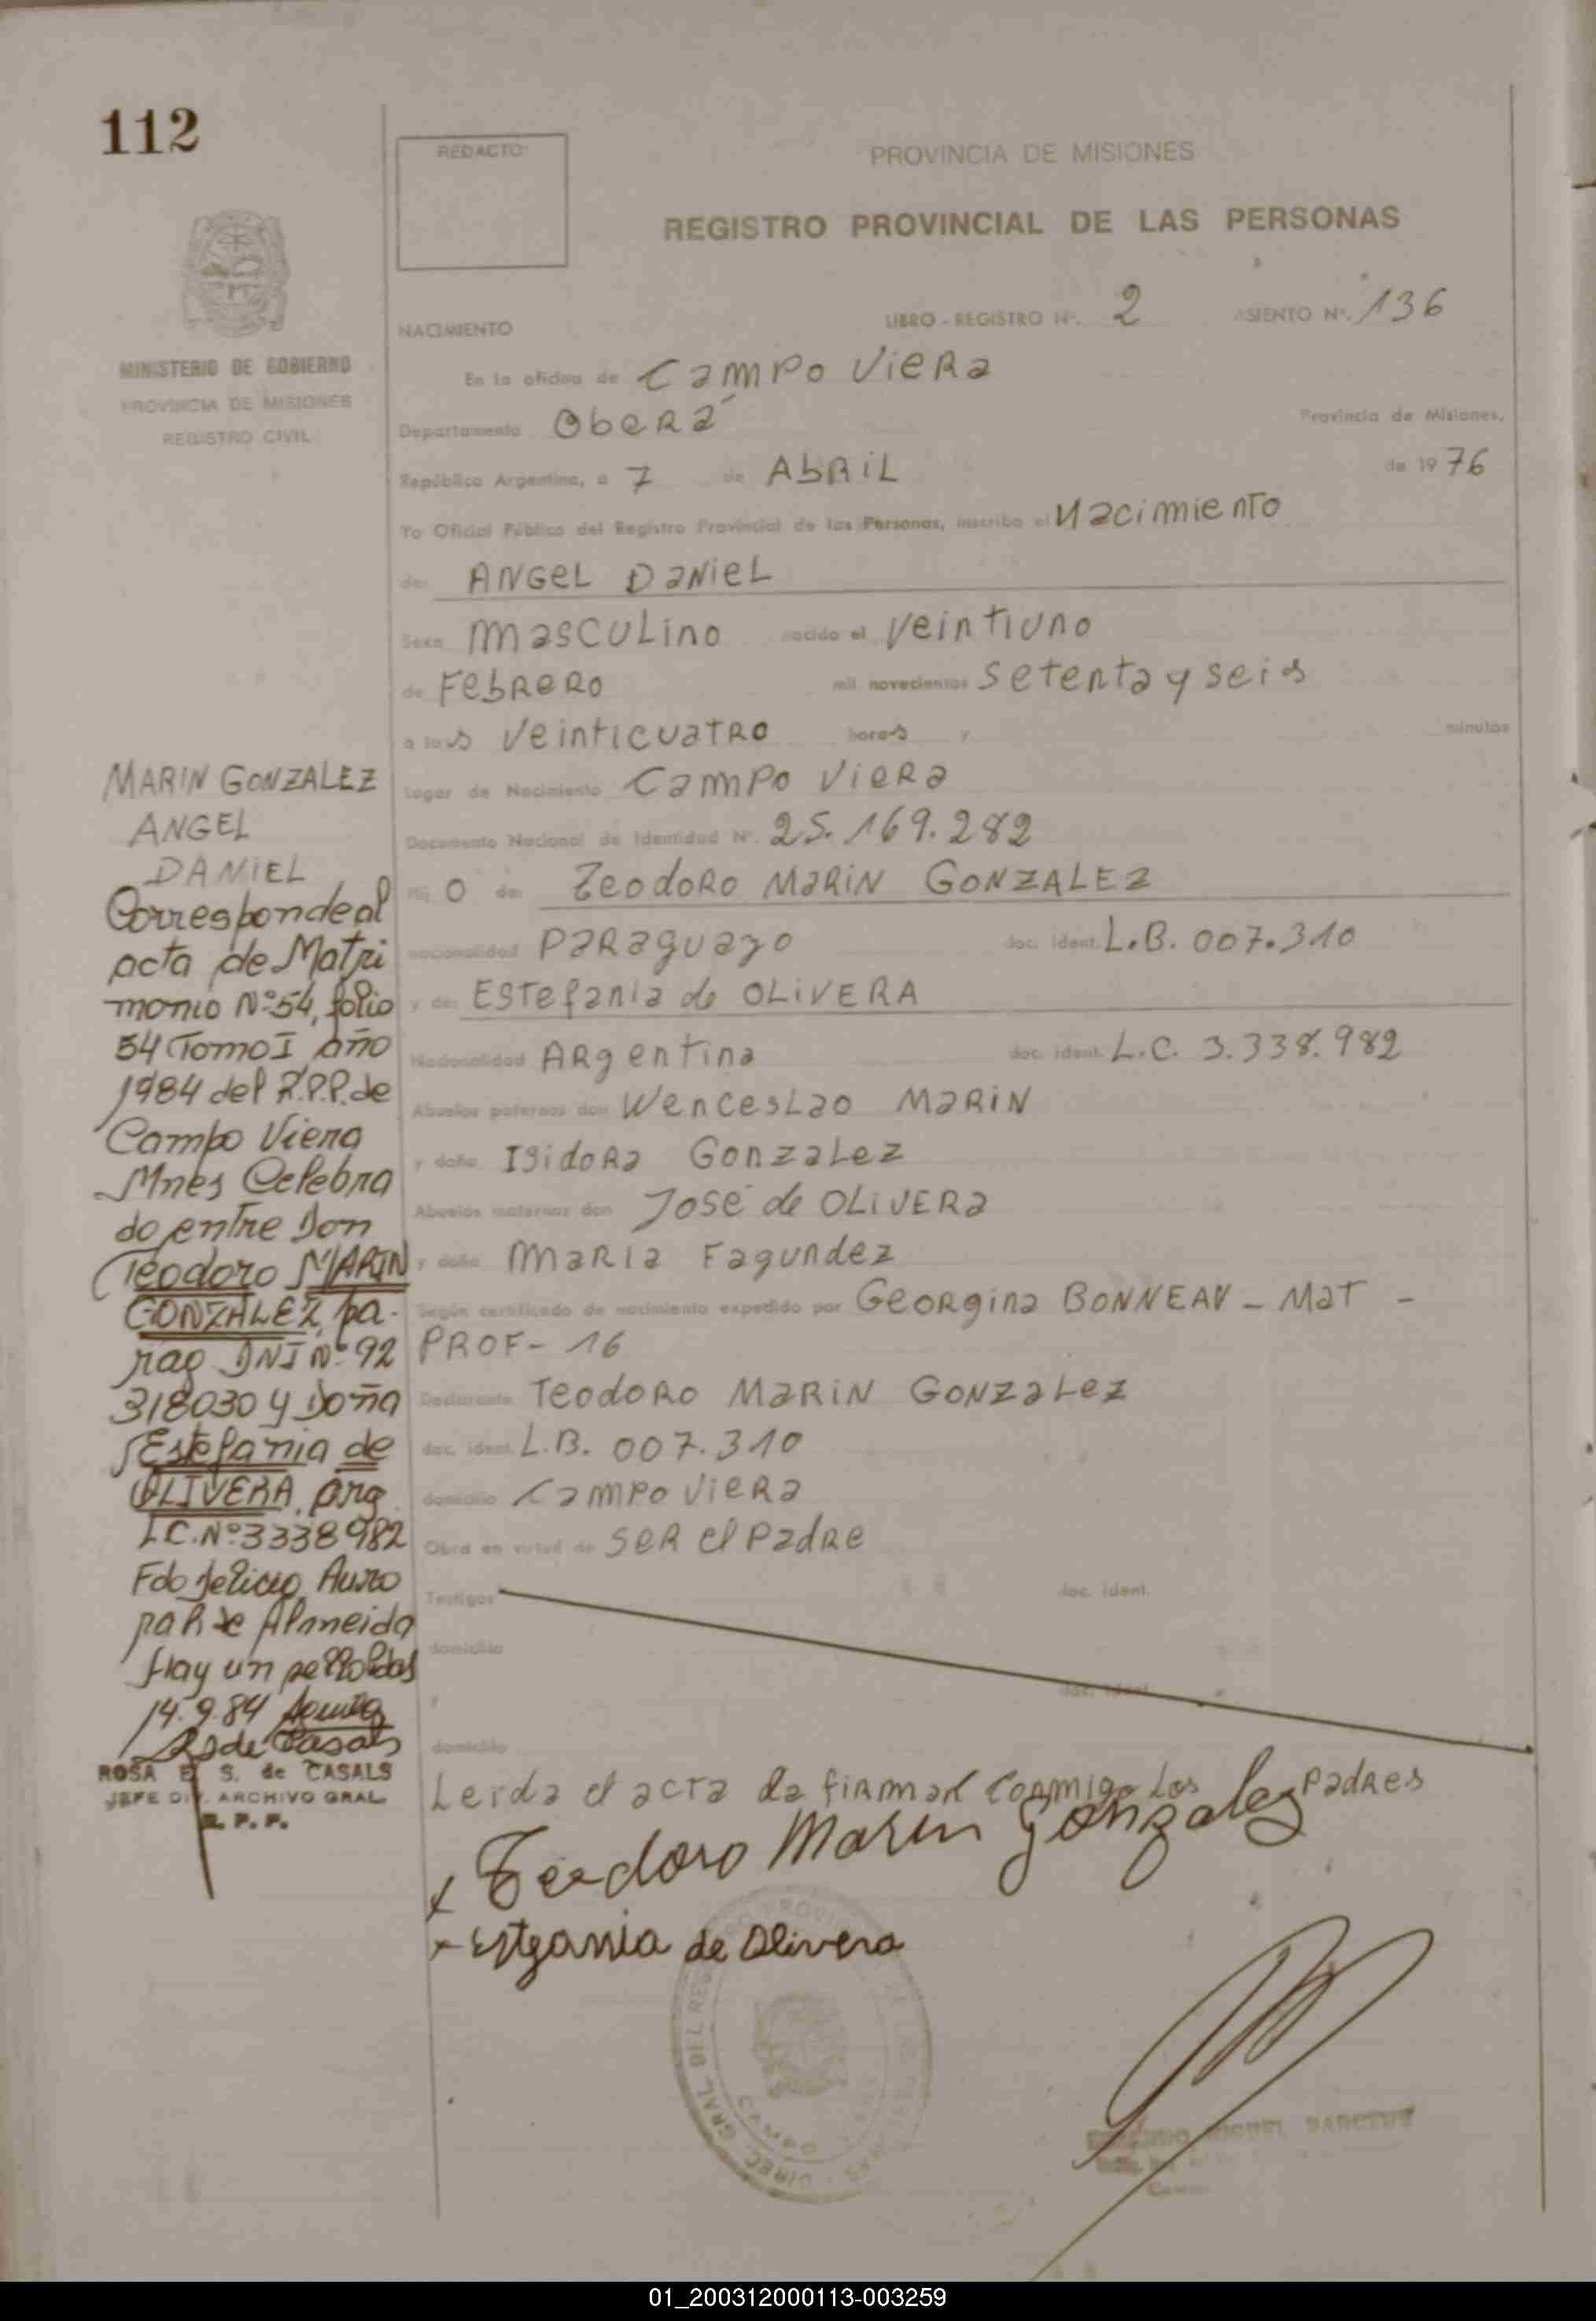 112
REDACTO:
PROVINCIA DE MISIONES
REGISTRO PROVINCIAL DE LAS PERSONAS
MINISTERIO DE GOBIERNO
PROVINCIA DE MISIONES
REGISTRO CIVIL
NACIMIENTO
LIBRO - REGISTRO Nº. 2 ASIENTO Nº. 136
En la oficina de Campo Viera
Departamento Oberá Provincia de Misiones,
República Argentina, a 7 de Abril de 1976
Yo Oficial Público del Registro Provincial de las Personas, inscribo el Nacimiento
de: ANGEL DANIEL
Sexo Masculino nacido el Veintiuno
de Febrero mil novecientos setenta y seis
a las Veinticuatro horas y minutos
Lugar de Nacimiento Campo Viera
Documento Nacional de Identidad Nº. 25.169.282
Hijo de: Teodoro MARIN GONZALEZ
nacionalidad Paraguayo doc. ident. L.B. 007.310
y de: Estefania de OLIVERA
Nacionalidad Argentina doc. ident. L.C. 3.338.982
Abuelos paternos don Wenceslao MARIN
y doña Isidora Gonzalez
Abuelos maternos don José de OLIVERA
y doña Maria Fagundez
Según certificado de nacimiento expedido por Georgina BONNEAU - MAT -
PROF - 16
Declarante Teodoro MARIN GONZALEZ
doc. ident. L.B. 007.310
domicilio Campo Viera
Obra en virtud de ser el padre
Testigos doc. ident.
domicilio
y doc. ident.
domicilio
Leida el acta la firman conmigo los padres
x Teodoro Marin Gonzalez
x Estefania de Olivera
MARIN GONZALEZ
ANGEL
DANIEL
Corresponde al
acta de Matri
monio Nº 54, folio
54 Tomo I año
1984 del R.P.P. de
Campo Viera
Mnes Celebra
do entre Don
Teodoro MARIN
GONZALEZ, pa-
rag DNI Nº 92
318030 y Doña
Estefania de
OLIVERA, arg
L.C. Nº 3338982
Fdo
de Almeida
Hay un sello
14.9.84
R de Casals
ROSA E. S. de CASALS
JEFE DIV. ARCHIVO GRAL.
R. P. P.
DIREC. GRAL. DEL
CAMPO
MIGUEL
01_200312000113-003259